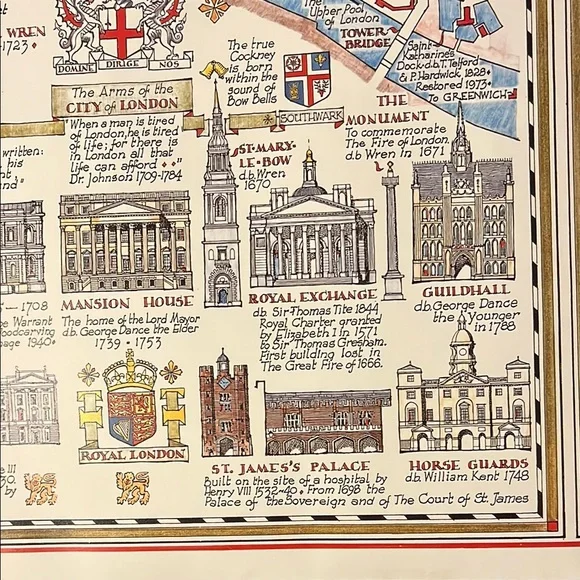 WREN
1723
DOMINE DIRIGE NOS
The Arms of the
CITY of LONDON
"When a man is tired
of London, he is tired
of life; for there is
in London all that
life can afford"
Dr. Johnson 1709-1784
The true
Cockney
is born
within the
sound of
Bow Bells
SOUTHWARK
The
Upper Pool
of London
TOWER
BRIDGE
Saint
Katharine's
Dock d.b. T. Telford
& P. Hardwick 1828
Restored 1973
To GREENWICH
THE
MONUMENT
To commemorate
The Fire of London,
db Wren in 1671
ST. MARY-
LE-BOW
d.b. Wren
1670
written:
his
and"
1708
Warrant
Woodcarving
page 1940
MANSION HOUSE
The home of the Lord Mayor
d.b. George Dance the Elder
1739 - 1753
ROYAL EXCHANGE
db. Sir Thomas Tite 1844
Royal Charter granted
by Elizabeth I in 1571
to Sir Thomas Gresham.
First building lost in
The Great Fire of 1666.
GUILDHALL
db. George Dance
the Younger
in 1788
ROYAL LONDON
III
by
ST. JAMES'S PALACE
Built on the site of a hoshital by
Henry VIII 1532-40. From 1698 the
Palace of the Sovereign and of The Court of St. James
HORSE GUARDS
d.b. William Kent 1748